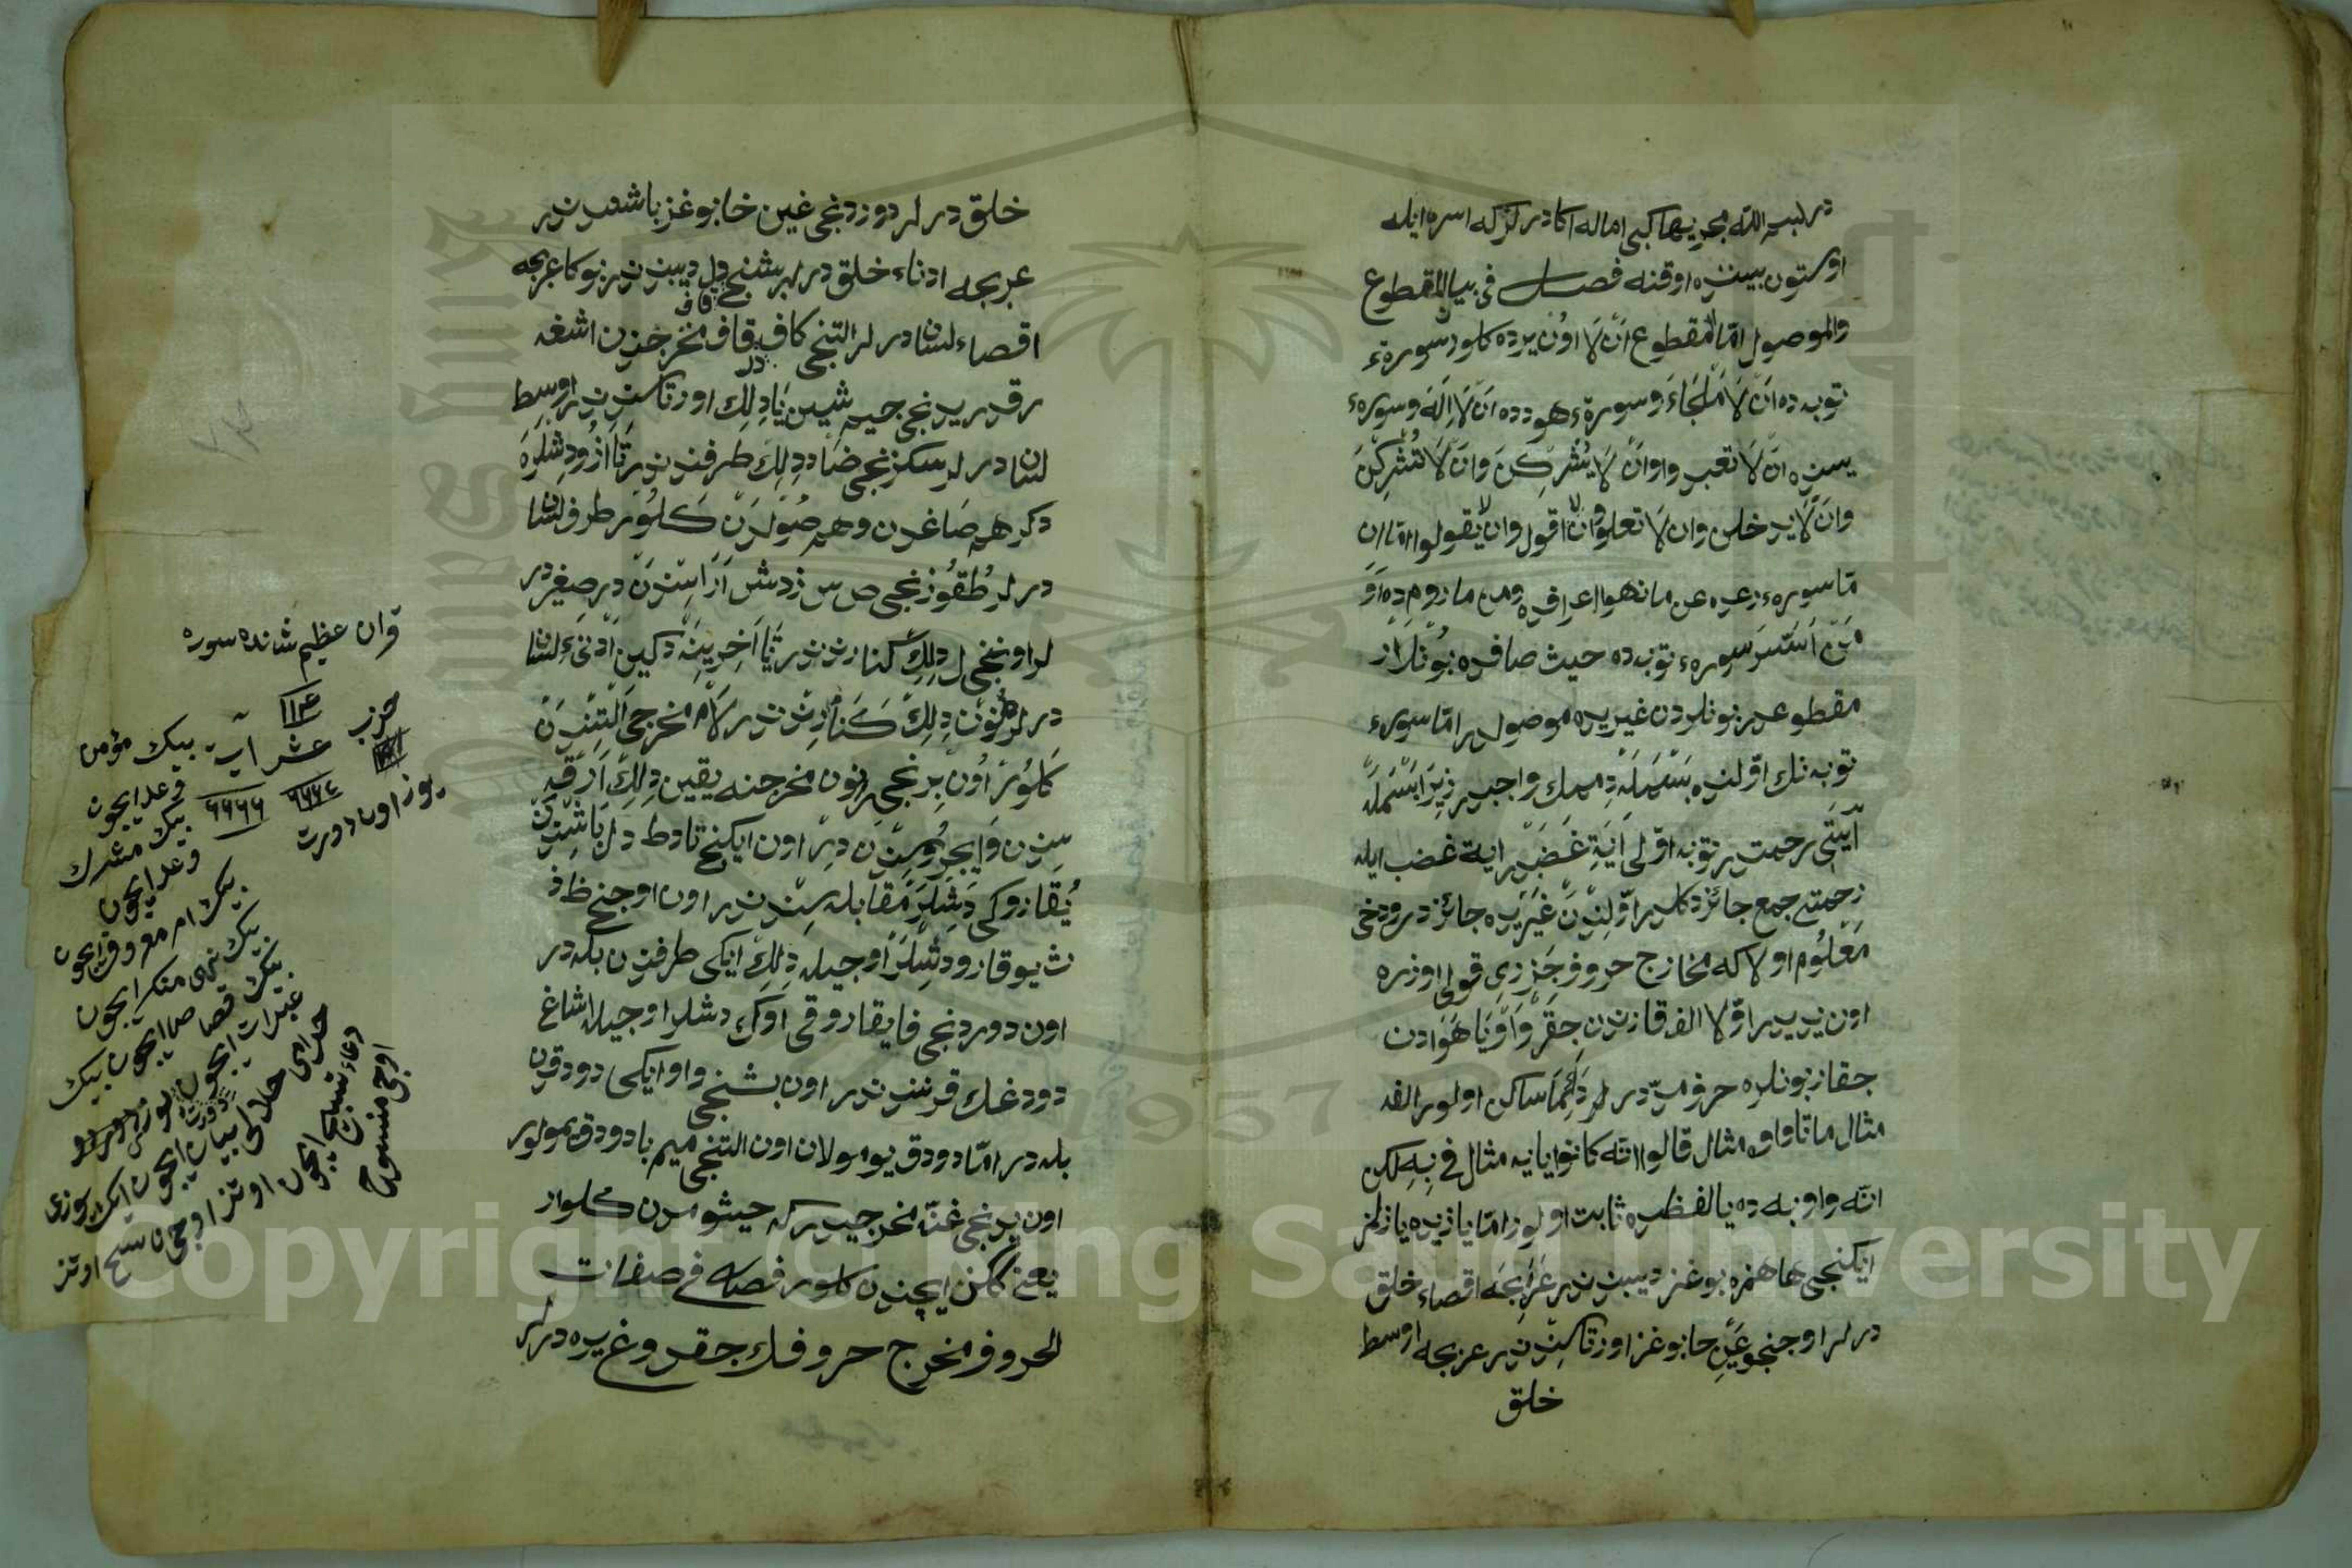 در لبسم الله مجريها كبى اماله اكا در كركه اسره ايله
اوستون بيننده اوقنه فصل فى بيان المقطوع
والموصول امّا مقطوع اَنْ لَا اوُن يرده كلور سورهٔ
توبه ده اَنْ لَا مَلْجَاءَ وسورهٔ هودده اَنْ لَا اِلَهَ وسورهٔ
يسنده اَنْ لَا تعبدوا وان لَا يُشْرِكْنَ وَانْ لَا تُشْرِكْنَ
وَانْ لَا يدخلن وان لَا تعلوا وان لا اقول وان لا يقولوا امّا ان
مّا سورهٔ رعده عن ما نهوا اعرافده ومن ما رومده اَوْ
مَنْ اَسَّسَ سورهٔ توبه ده حيث صافده بُونْلَار
مقطوعدر بونلردن غيريده موصولدر امّا سورهٔ
توبه نك اوّلنده بَسْمَلَه دِمِمك واجبدر زِيرَا بَسْمَلَه
آيَتِى رحمتدر توبه اوّلى اَيَةِ غَضَبدر اية غضب ايله
رحمتى جمع جائز دكلدر اوّلِنْدَنْ غَيْرِيده جائز در ودخى
مَعْلُوم اولا كه مخارج حروف جَزَرِى قولى اوزره
اون يديدر اوّلا الف قازندن جِقَرْ وَاوْ يَا هَوَادن
جقار بونلره حروف مدّ درلر دَائِمَا ساكن اولور الف
مثال ما تا واوه مثال قالوا انّه كانوا يايه مثال فى بِهِ لكن
انّه واو به ده يا لفظده ثابت اولور امّا يازيده يازلمز
ايكنجى ها همزه بوغز ديبندندر عَرَبْجَه اقصاء خلق
درلر اوجنجو عَيْن حا بوغز اورتاسِنْدندر عربجه اوسط
خلق
خلق درلر دوردنجى غين خا بوغز باشندندر
عربجه ادناء خلق درلر بشنجى قاف دل ديبندندر بوكا عربجه
اقصاء لسان درلر التنجى كاف قاف مخرجندن اشغه
رقدر يدنجى جيم شين يَا دِلِك اورتاسندندر اوسِط
لسان درلر سكزنجى ضاد دِلِك طرفندندر تَا اَزُو دِشْلَره
دكر هم صَاغدن وهم صُولدَن كَلُور طرف لسان
درلر طُقُوزنجى ص س ز دش اَرَاسِنْدَنْ در صغير در
لر اوننجى ل دِلِك كنارندندر تَا اَخِرِينَه دكين اَدْنَئِ لسان
درلر نُون دِلِك كَنَارِنْدندر لَام مخرجى اَلْتِنْدَنْ
كَلُور اُون بِرنجى ر نون مخرجنه يقين دِلِك اَرْقَه
سندن وَايجروسِنْدن دِرْ اون ايكنجى تا د ط دل باشِنْدن
يُقَارُوكى دِشْلَر مُقَابله سندندر اون اوجنجى ظ ذ
ث يوقارو دِشْلَر اوجيله دِلِك ايكى طرفندن بله در
اون دوردنجى فا يقاروقى اوك دشلر اوجيله اشاغ
دودغك قرنندندر اون بشنجى واو ايكى دودقدن
بله در امّا دودق يومولان اون التنجى ميم با دودق يمولور
اون يدنجى غنّه مخرجيدر كه حيشومدن كلور
يعنى كگن ايچندن كلور فصل فى صفات
الحروف مخرج حروفك جقدوغ يره درلر
قران عظيم شانده سوره
١١٤
حزب
عشر آيت
٦٦٦٤ ٦٦٦٦
يوز اون دورت
بيك مؤمن
وعد ايچون
بيك مشرك
وعد ايچون
بيك امر معروف ايچون
بيك نهى منكر ايچون
بيك قصاص ايچون بيك
عبرات ايچون
حرامى حلالى بيان ايچون
دعاء تسبيح ايچون
اوتز اوجى
منسوخ